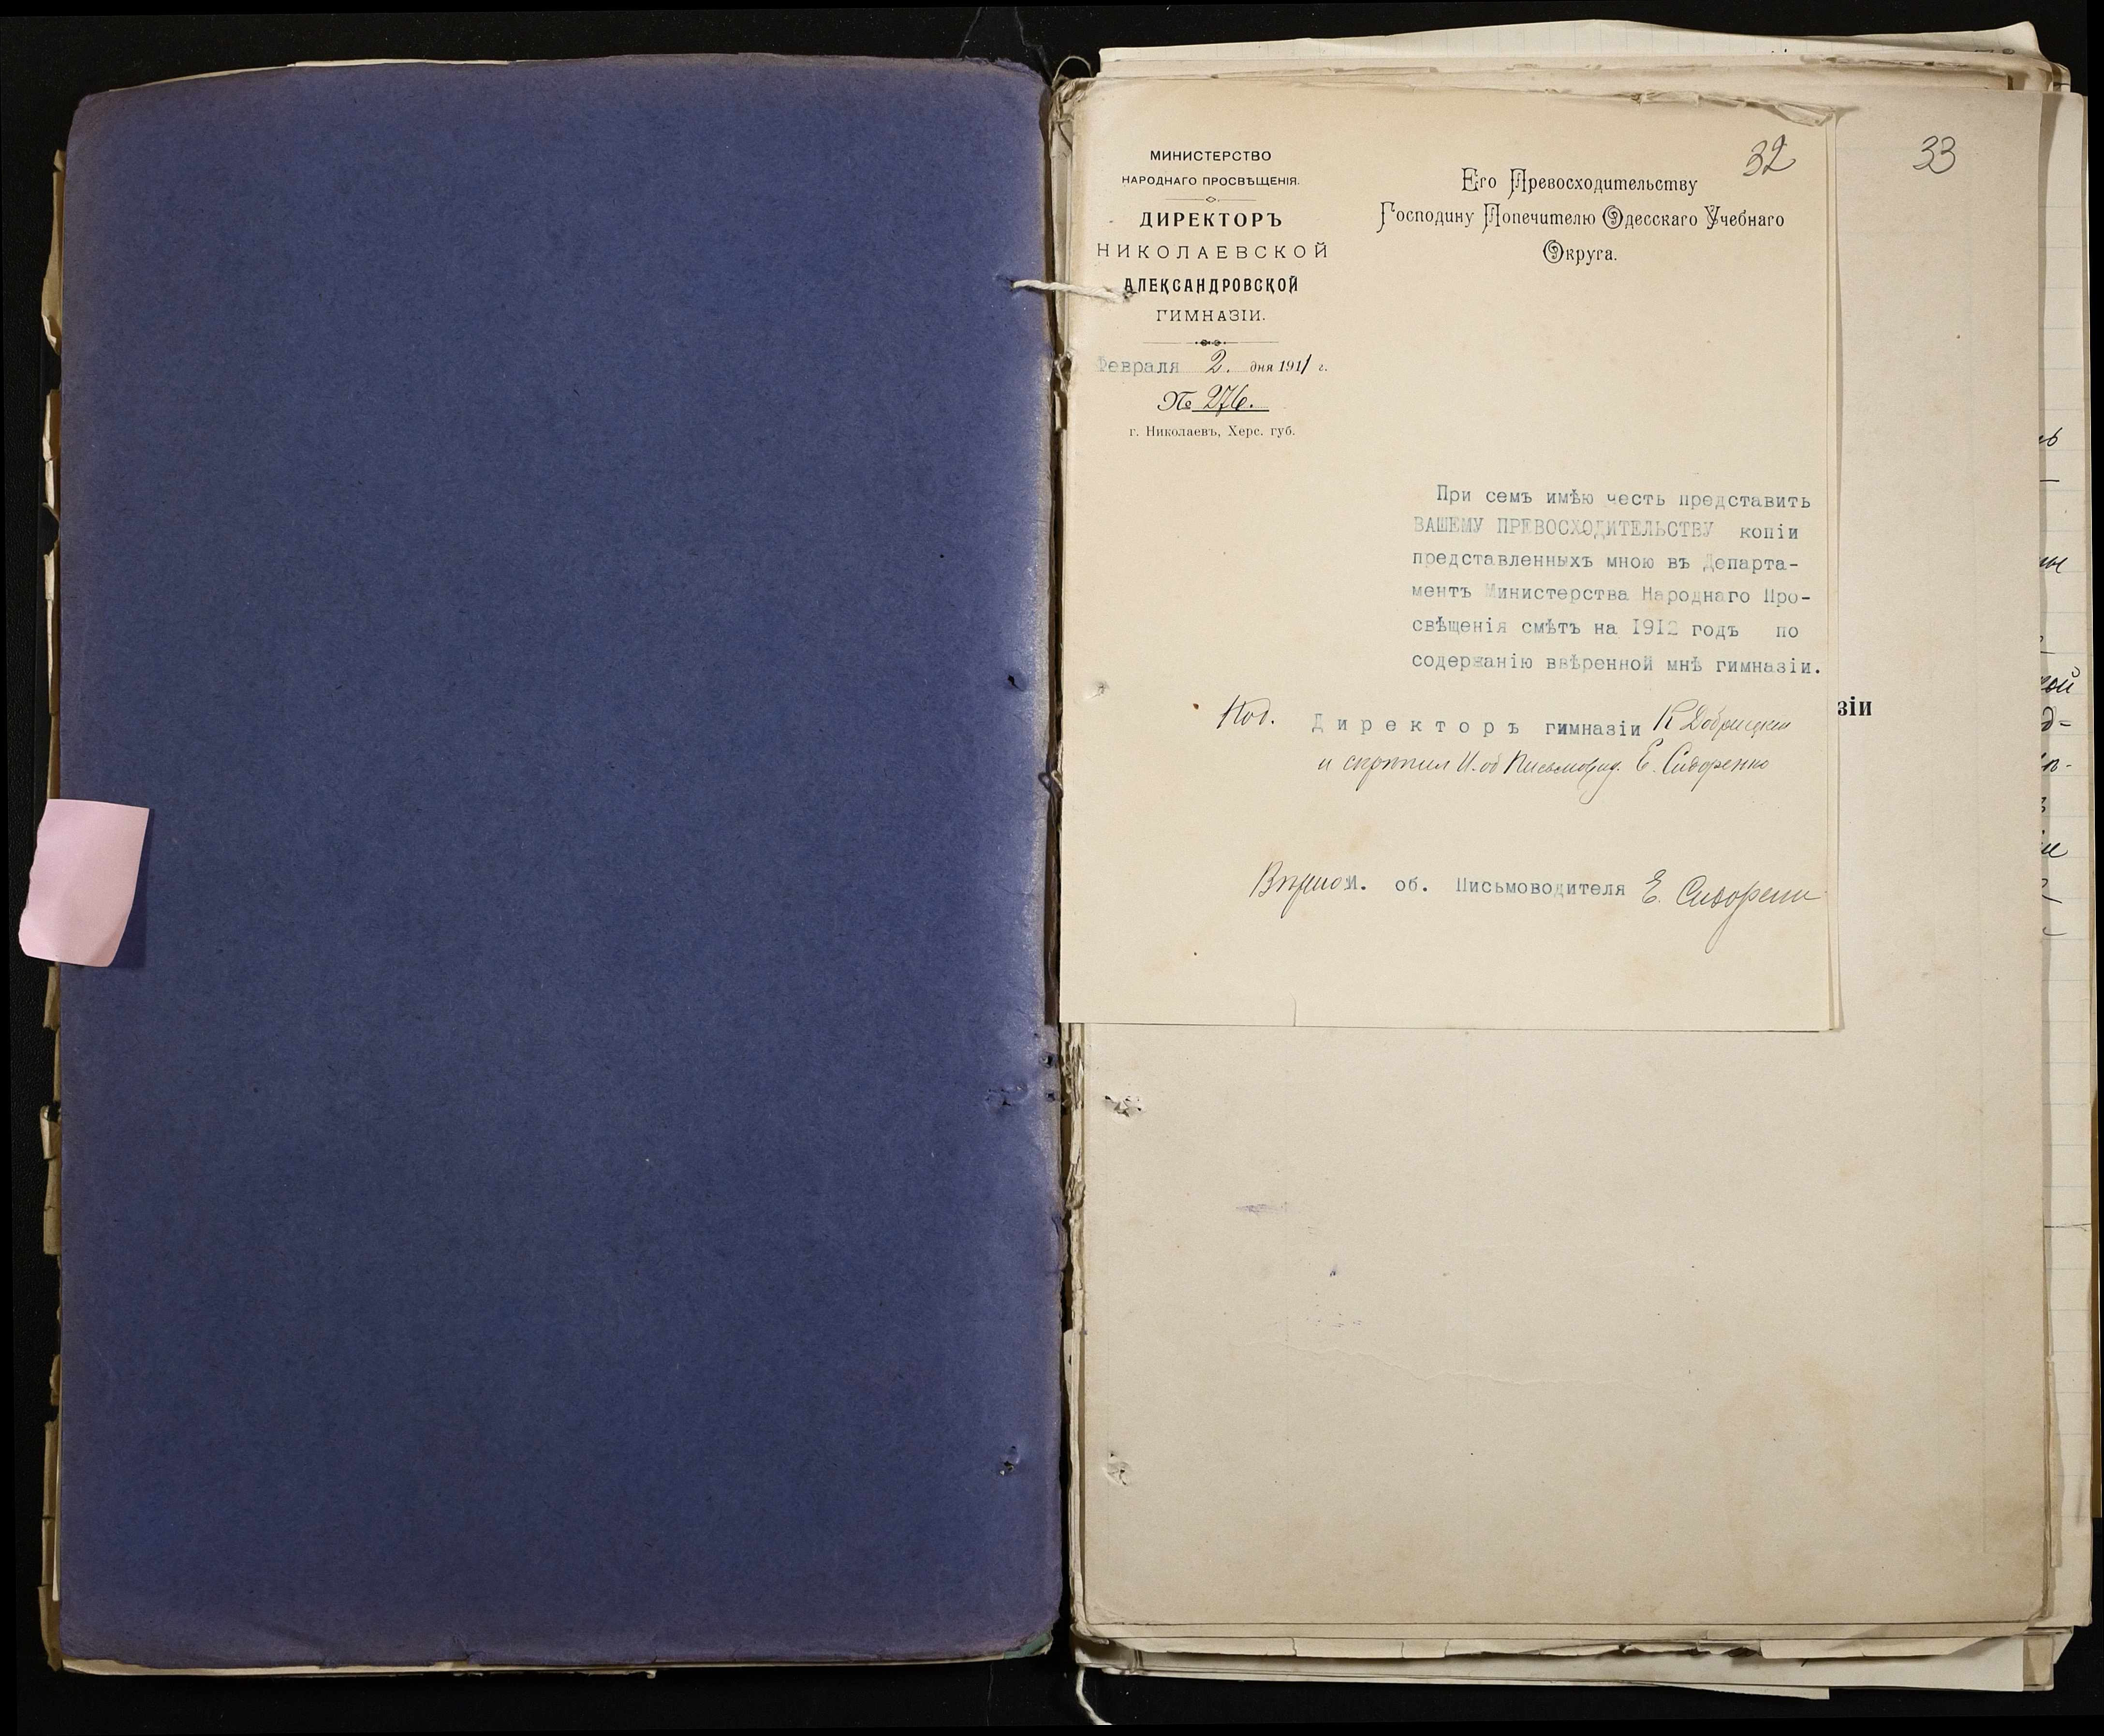 32
33
МИНИСТЕРСТВО
НАРОДНАГО ПРОСВѢЩЕНІЯ.
ДИРЕКТОРЪ
НИКОЛАЕВСКОЙ
АЛЕКСАНДРОВСКОЙ
ГИМНАЗІИ.
Февраля 2. дня 1911 г.
№ 276.
г. Николаевъ, Херс. губ.
Его Превосходительству
Господину Попечителю Одесскаго Учебнаго
Округа.
При семъ имѣю честь представить
ВАШЕМУ ПРЕВОСХОДИТЕЛЬСТВУ копіи
представленныхъ мною въ Департа-
ментъ Министерства Народнаго Про-
свѣщенія смѣтъ на 1912 годъ по
содержанію ввѣренной мнѣ гимназіи.
зіи
Под. Директоръ гимназіи К
и скрѣпил И. об Письмовод. Е. Сидоренко
Вѣрно: И. об. Письмоводителя Е. Сидоренко